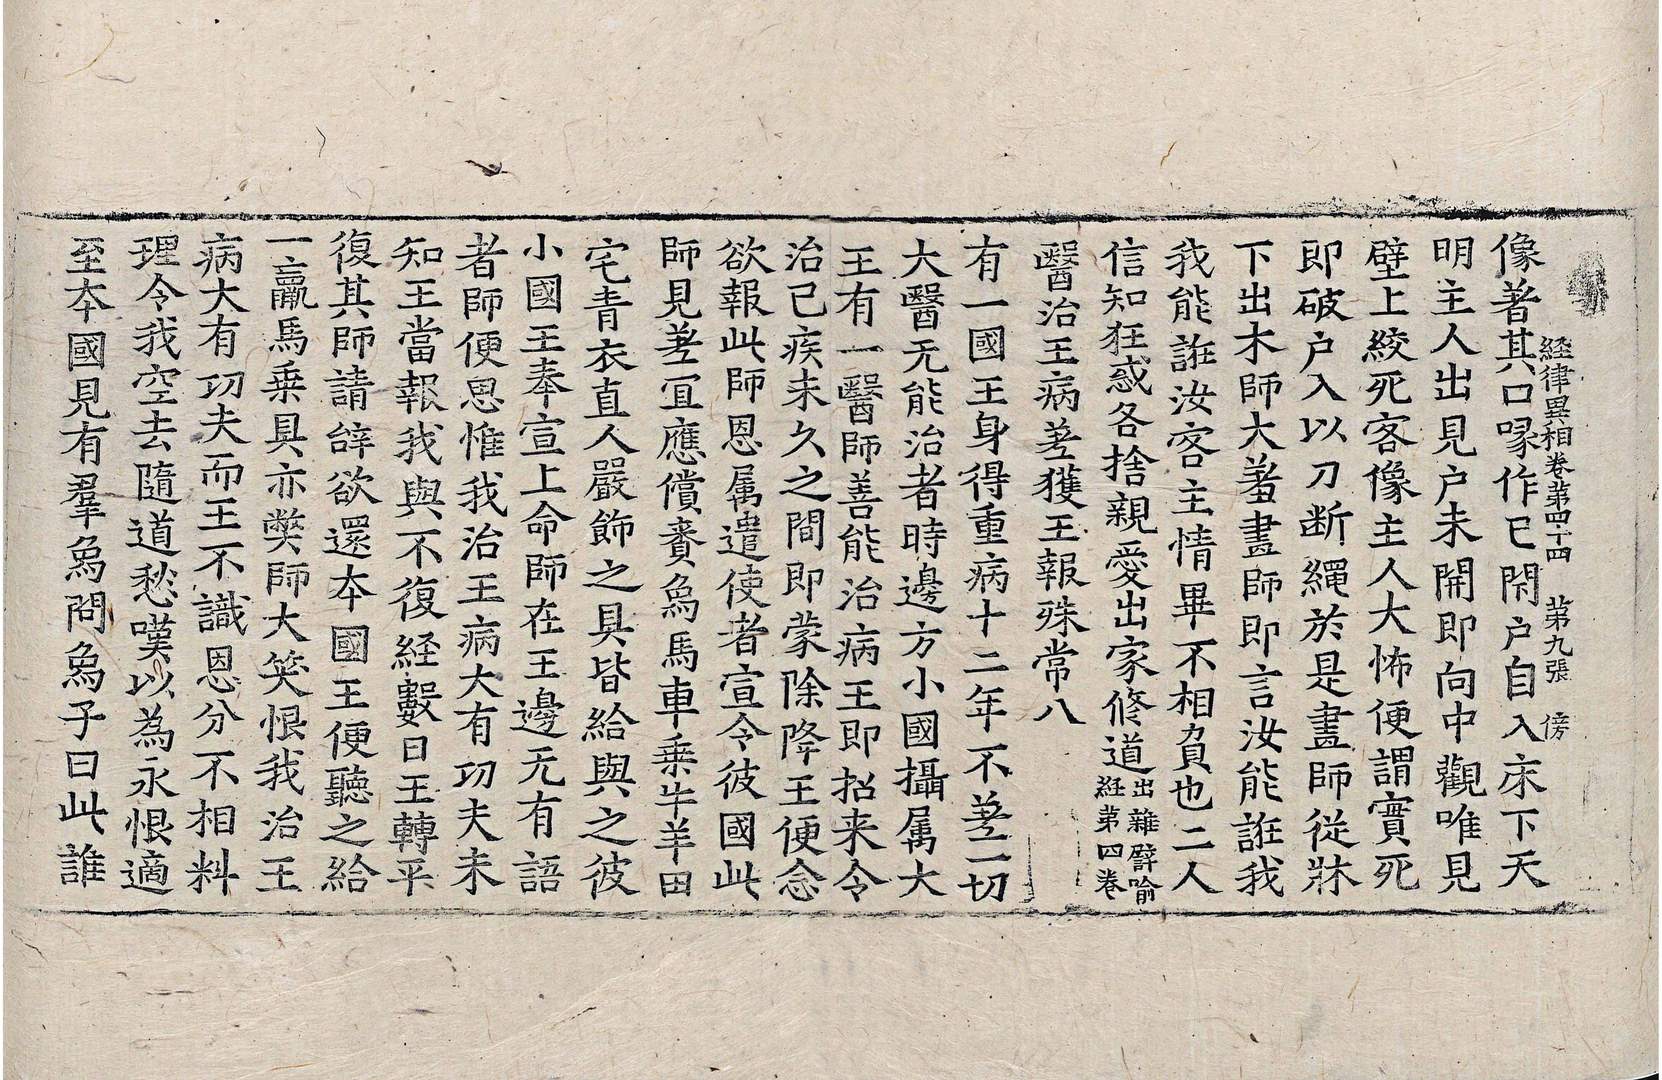 経律異相卷第四十四 第九張 傍
像著其口喙作已閇户自入床下天
明主人出見户未開即向中觀唯見
壁上絞死客像主人大怖便謂實死
即破户入以刀断繩於是畫師從牀
下出木師大羞畫師即言汝能誑我
我能誑汝客主情畢不相負也二人
信知狂惑各捨親愛出家修道出雜譬喻経第四卷
醫治王病差獲王報殊常八
有一國王身得重病十二年不差一切
大醫无能治者時邊方小國攝属大
王有一醫師善能治病王即招来令
治已疾未久之間即蒙除降王便念
欲報此師恩属遣使者宣令彼國此
師見差宜應償賚象馬車乗牛羊田
宅青衣直人嚴飾之具皆給與之彼
小國王奉宣上命師在王邊无有語
者師便思惟我治王病大有功夫未
知王當報我與不復経數日王轉平
復其師請辞欲還本國王便聽之給
一羸馬乗具亦弊師大笑恨我治王
病大有功夫而王不識恩分不相料
理令我空去隨道愁嘆以為永恨適
至本國見有羣象問象子曰此誰